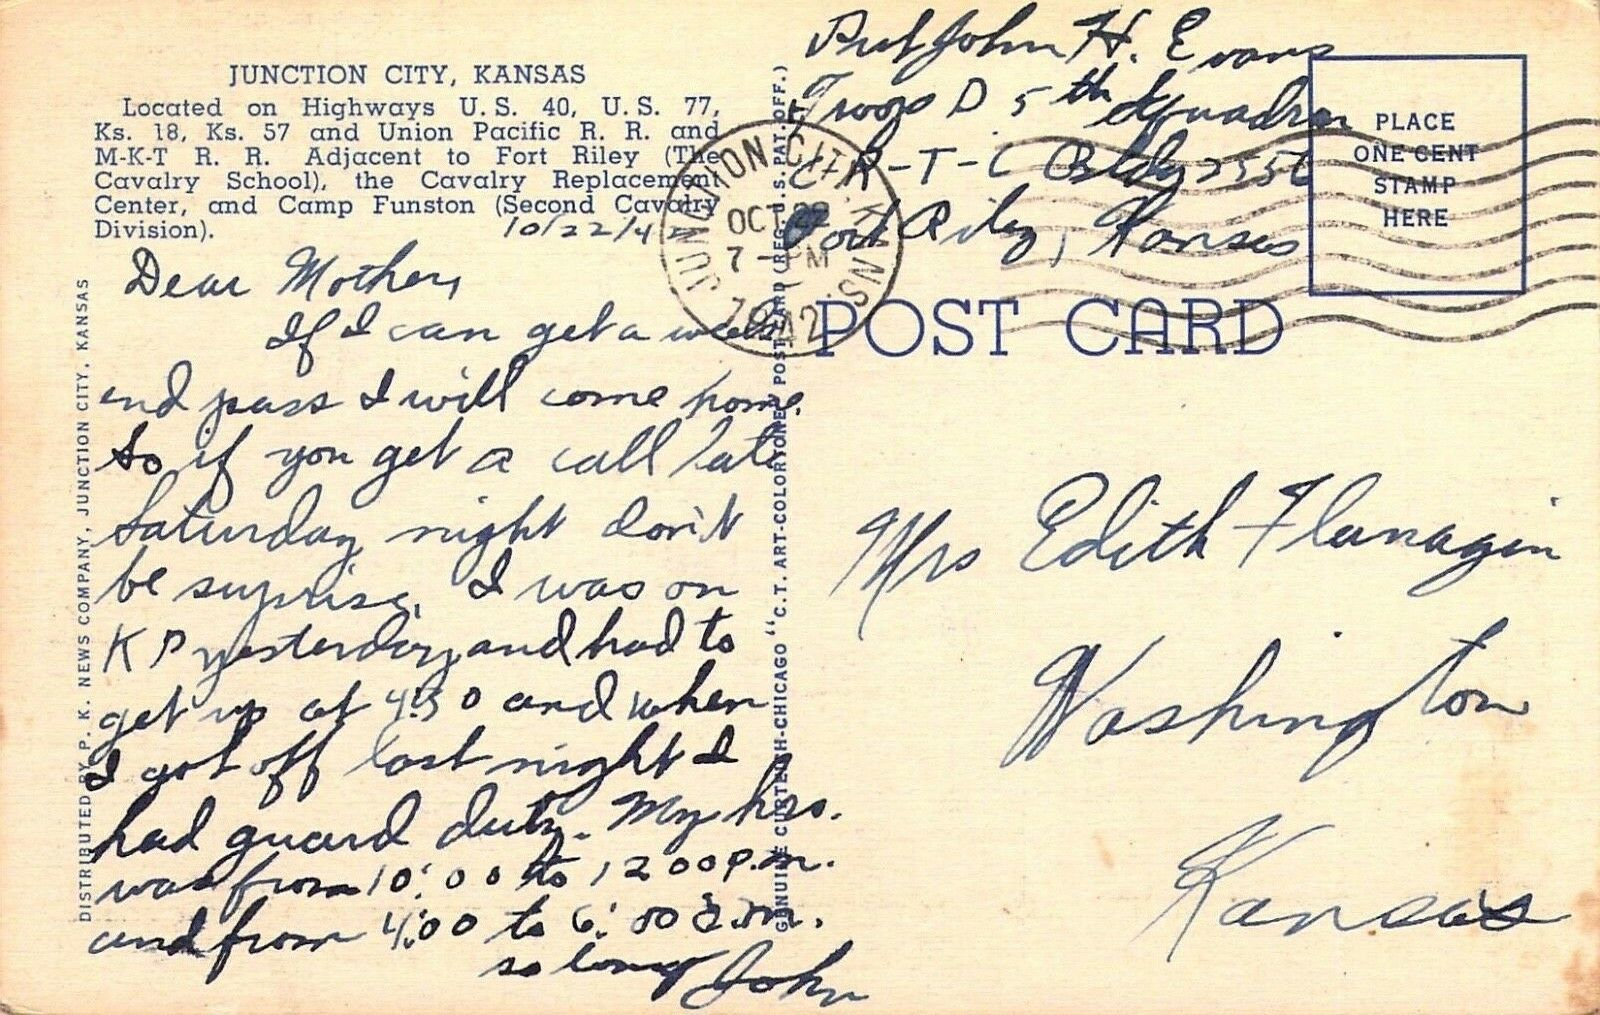 JUNCTION CITY, KANSAS
Located on Highways U. S. 40, U. S. 77,
Ks. 18, Ks. 57 and Union Pacific R. R. and
M-K-T R. R. Adjacent to Fort Riley (The
Cavalry School), the Cavalry Replacement
Center, and Camp Funston (Second Cavalry
Division).
10/22/42
Dear Mother,
If I can get a week
end pass I will come home.
So if you get a call late
Saturday night don't
be surprise. I was on
KP yesterday and had to
get up at 4:30 and when
I got off last night I
had guard duty. My hrs.
was from 10:00 to 1200 p.m.
and from 4:00 to 6:00 a.m.
so long John
DISTRIBUTED BY P. K. NEWS COMPANY, JUNCTION CITY, KANSAS
GENUINE CURTEICH-CHICAGO "C.T. ART-COLORTONE" POST CARD (REG. U.S. PAT. OFF.)
JUNCTION CITY KANS.
OCT 22
7-PM
1942
Pvt John H. Evans
Troop D 5th Squadron
C-R-T-C Bldg
Fort Riley, Kansas
PLACE
ONE CENT
STAMP
HERE
POST CARD
Mrs Edith Flanagin
Washington
Kansas